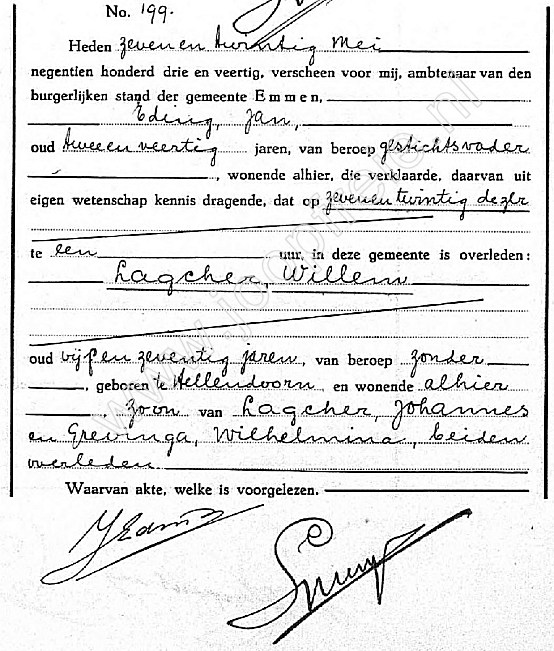 No. 199.
Heden zeven en twintig Mei
negentien honderd drie en veertig, verscheen voor mij, ambtenaar van den
burgerlijken stand der gemeente Emmen,
Eding, Jan,
oud twee en veertig jaren, van beroep gestichtsvader
, wonende alhier, die verklaarde, daarvan uit
eigen wetenschap kennis dragende, dat op zeven en twintig dezer
te een uur, in deze gemeente is overleden:
Lagcher, Willem
oud vijf en zeventig jaren, van beroep zonder
, geboren te Hellendoorn, en wonende alhier
, zoon van Lagcher, Johannes
en Grevinga, Wilhelmina, beiden
overleden
Waarvan akte, welke is voorgelezen.
JEding